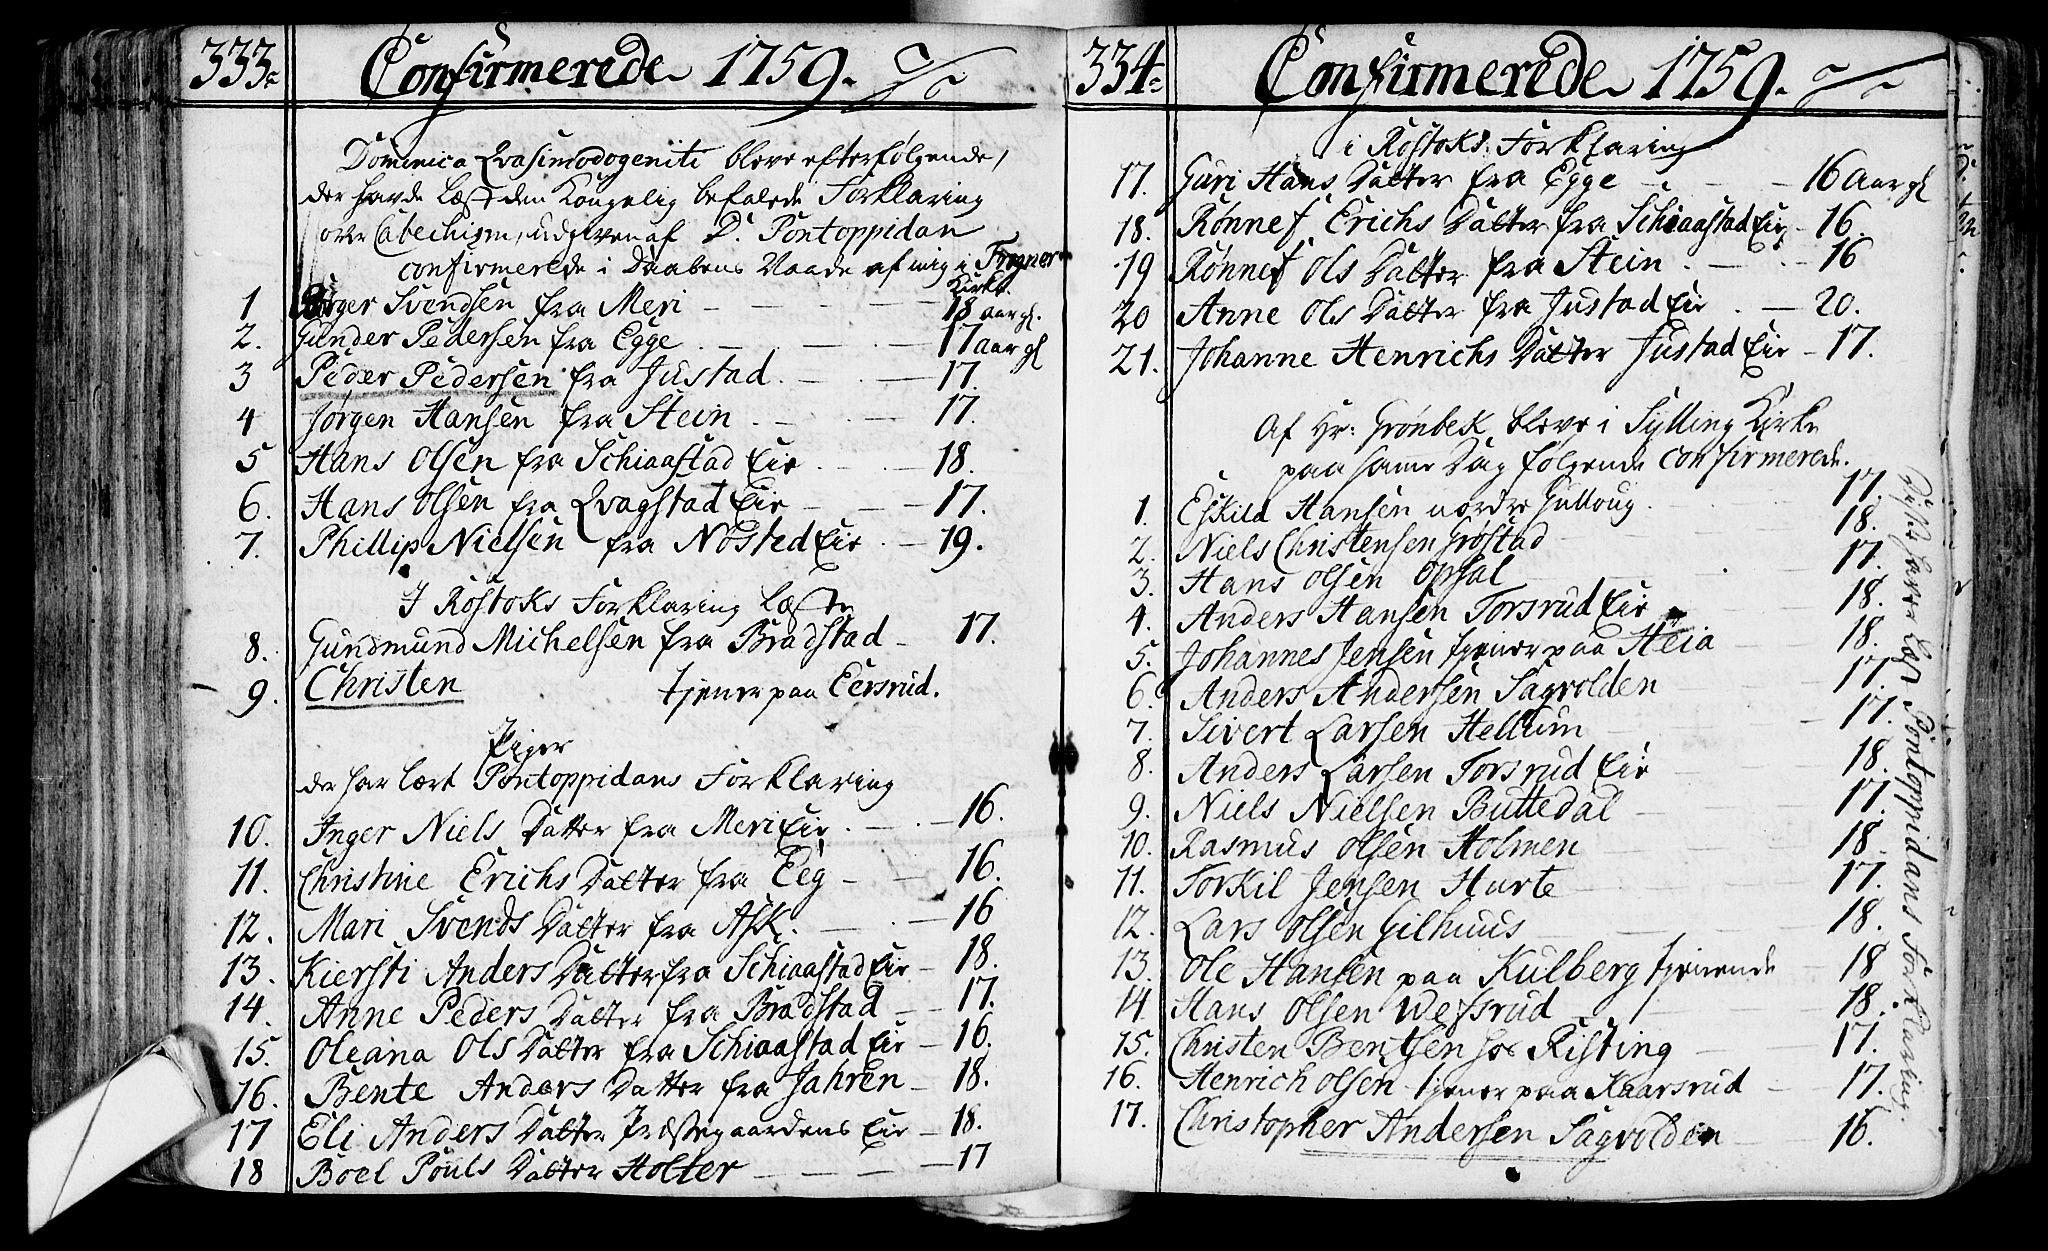 333.
Confirmerede 1759.
Dominica Qvasimodogeniti bleve efterfølgende,
der havde læst den Kongelig befalede Forklaring
over Catechism, udgiven af D. Pontoppidan
confirmerede i Daabens Naade af mig i
Kirke.
1 Svendsen fra Meri - 18 aar gl.
2. Gunder Pedersen fra Egge - 17 aar gl
3 Peder Pedersen fra Justad - 17.
4 Jørgen Hansen fra Stein - 17.
5 Hans Olsen fra Schiaastad Eie - 18.
6. Hans Olsen fra Qvagstad Eie - 17.
7. Phillip Nielsen fra Nøsted Eie - 19.
I Rostoks Forklaring læste
8. Gundmund Michelsen fra Bradstad - 17.
9. Christen tjener paa Eersrud.
Piger
der har lært Pontoppidans Forklaring
10. Inger Niels Datter fra Meri Eie - 16.
11. Christine Erichs Datter fra Eeg - 16.
12. Mari Svends Datter fra Ask. - 16
13. Kiersti Anders Datter fra Schiaastad Eie - 18.
14. Anne Peders Datter fra Bradstad - 17.
15. Oleana Ols Datter fra Schiaastad Eie - 16.
16. Bente Anders Datter fra Jahren - 18.
17 Eli Anders Datter Præstegaardens Eie - 18.
18 Boel Pouls Datter Holter - 17
334.
Confirmerede 1759.
i Rostoks Forklaring
17. Guri Hans Datter fra Egge - 16 Aar gl
18. Rønnef Erichs Datter fra Schiaastad Eie - 16.
19 Rønnef Ols Datter fra Stein - 16
20 Anne Ols Datter fra Justad Eie - 20.
21. Johanne Henrichs Datter Justad Eie - 17.
Af Hr: Grønbek bleve i Sylling Kirke
paa same Dag følgende confirmerede.
1. Eskild Hansen nordre Gulloug - 17.
2. Niels Christensen Grøstad - 18.
3. Hans Olsen Opsal - 17.
4. Anders Hansen Torsrud Eie - 18.
5. Johannes Jensen tjener paa Heia - 18.
6. Anders Andersen Sagvolden - 17
7. Sivert Larsen Hellum - 17.
8. Anders Larsen Torsrud Eie - 18.
9. Niels Nielsen Buttedal - 17.
10. Rasmus Olsen Holmen - 18.
11. Torkil Jensen Hurte - 17.
12. Lars Olsen Gilhuus - 18.
13. Ole Hansen paa Kulberg tjenende - 18
14 Hans Olsen Wefsrud - 18.
15. Christen Bentsen hos Risting - 17.
16. Henrich Olsen tjener paa Kaarsrud - 17.
17. Christopher Andersen Sagvolden - 16.
Disse haver læst Pontoppidans Forklaring.